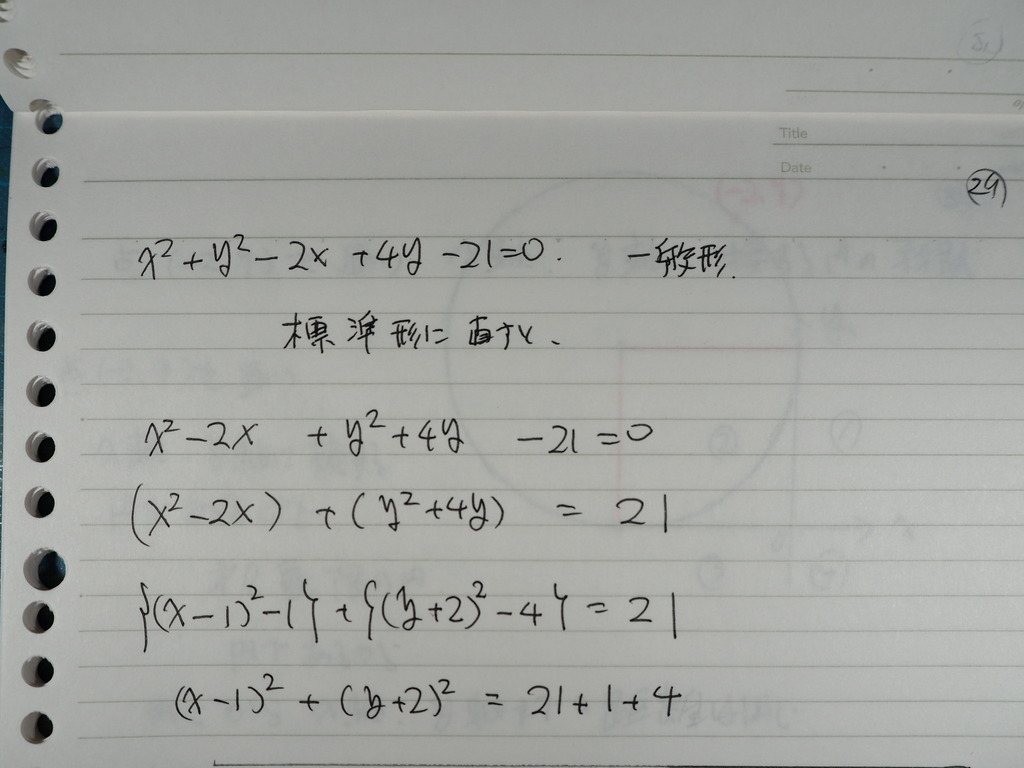 Title
Date
29
x² + y² - 2x + 4y - 21 = 0. 一般形.
標準形に直すと、
x² - 2x + y² + 4y - 21 = 0
(x² - 2x) + (y² + 4y) = 21
{(x - 1)² - 1} + {(y + 2)² - 4} = 21
(x - 1)² + (y + 2)² = 21 + 1 + 4